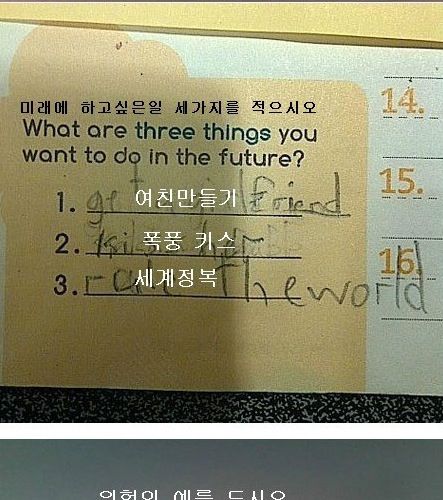 미래에 하고싶은일 세가지를 적으시오
What are three things you
want to do in the future?
1. get friend 여친만들기
2. 폭풍 키스~
3. The world 세계정복
14.
15.
16.
위험의 예를 드시오